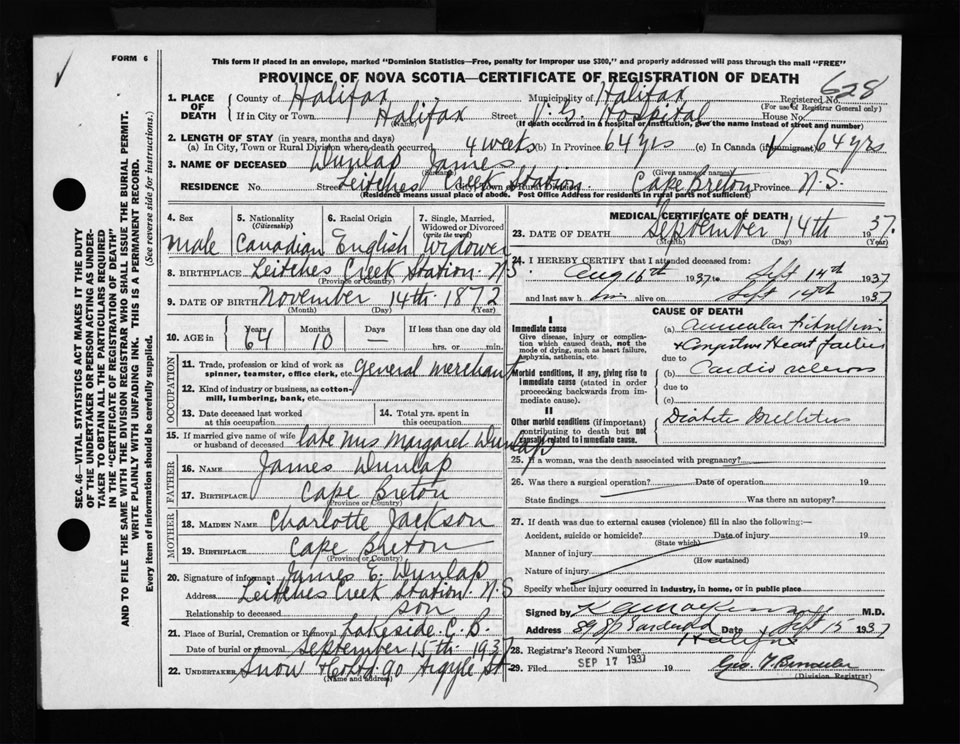 FORM 6
This form if placed in an envelope, marked "Dominion Statistics—Free, penalty for improper use $300," and properly addressed will pass through the mail "FREE"
PROVINCE OF NOVA SCOTIA—CERTIFICATE OF REGISTRATION OF DEATH
628
1. PLACE OF DEATH
County of Halifax Municipality of Halifax Registered No.
(For use of Registrar General only)
If in City or Town Halifax Street V. G. Hospital House No.
(Name) (If death occurred in a hospital or institution, give the name instead of street and number)
2. LENGTH OF STAY (in years, months and days)
(a) In City, Town or Rural Division where death occurred 4 weeks (b) In Province 64 yrs (c) In Canada (if immigrant) 64 yrs
3. NAME OF DECEASED Dunlap James
(Surname) (Given name or names)
RESIDENCE No. Street Leitches Creek Station Cape Breton Province N.S.
City, Town or Rural Division
(Residence means usual place of abode. Post Office Address for residents in rural parts not sufficient)
4. Sex
male
5. Nationality (Citizenship)
Canadian
6. Racial Origin
English
7. Single, Married, Widowed or Divorced (write the word)
Widower
8. BIRTHPLACE Leitches Creek Station. N.S
(Province or Country)
9. DATE OF BIRTH November 14th. 1872
(Month) (Day) (Year)
10. AGE in
Years 64
Months 10
Days —
If less than one day old
hrs. or min.
OCCUPATION
11. Trade, profession or kind of work as spinner, teamster, office clerk, etc. general merchant
12. Kind of industry or business, as cotton-mill, lumbering, bank, etc.
13. Date deceased last worked at this occupation
14. Total yrs. spent in this occupation
15. If married give name of wife or husband of deceased late Mrs Margaret Dunlap
FATHER
16. NAME James Dunlap
17. BIRTHPLACE Cape Breton
(Province or Country)
MOTHER
18. MAIDEN NAME Charlotte Jackson
19. BIRTHPLACE Cape Breton
(Province or Country)
20. Signature of informant James E. Dunlap
Address Leitches Creek Station. N.S
Relationship to deceased son
21. Place of Burial, Cremation or Removal Lakeside C.B
Date of burial or removal September 15th 1937
22. UNDERTAKER Snow & Co 90 Argyle St
(Name and address)
MEDICAL CERTIFICATE OF DEATH
23. DATE OF DEATH September 14th 1937.
(Month) (Day) (Year)
24. I HEREBY CERTIFY that I attended deceased from:
Aug 16th 1937 to Sept 14th 1937
and last saw him alive on Sept 14th 1937
CAUSE OF DEATH
I
Immediate cause
Give disease, injury or complication which caused death, not the mode of dying, such as heart failure, asphyxia, asthenia, etc.
Morbid conditions, if any, giving rise to immediate cause (stated in order proceeding backwards from immediate cause).
II
Other morbid conditions (if important) contributing to death but not causally related to immediate cause.
(a) Auricular Fibrillation
+ Congestive Heart Failure
due to
(b) Cardio sclerosis
due to
(c)
Diabetes Mellitus
25. If a woman, was the death associated with pregnancy?
26. Was there a surgical operation? Date of operation 19
State findings Was there an autopsy?
27. If death was due to external causes (violence) fill in also the following:—
Accident, suicide or homicide? Date of injury 19
(State which)
Manner of injury
(How sustained)
Nature of injury
Specify whether injury occurred in industry, in home, or in public place
Signed by M.D.
Address Date Sept 15 1937
Halifax
28. Registrar's Record Number
29. Filed SEP 17 1937 19
(Division Registrar)
SEC. 46—VITAL STATISTICS ACT MAKES IT THE DUTY
OF THE UNDERTAKER OR PERSON ACTING AS UNDERTAKER TO OBTAIN ALL THE PARTICULARS REQUIRED
IN THE "CERTIFICATE OF REGISTRATION OF DEATH"
AND TO FILE THE SAME WITH THE DIVISION REGISTRAR WHO SHALL ISSUE THE BURIAL PERMIT.
WRITE PLAINLY WITH UNFADING INK. THIS IS A PERMANENT RECORD.
Every item of information should be carefully supplied. (See reverse side for instructions.)